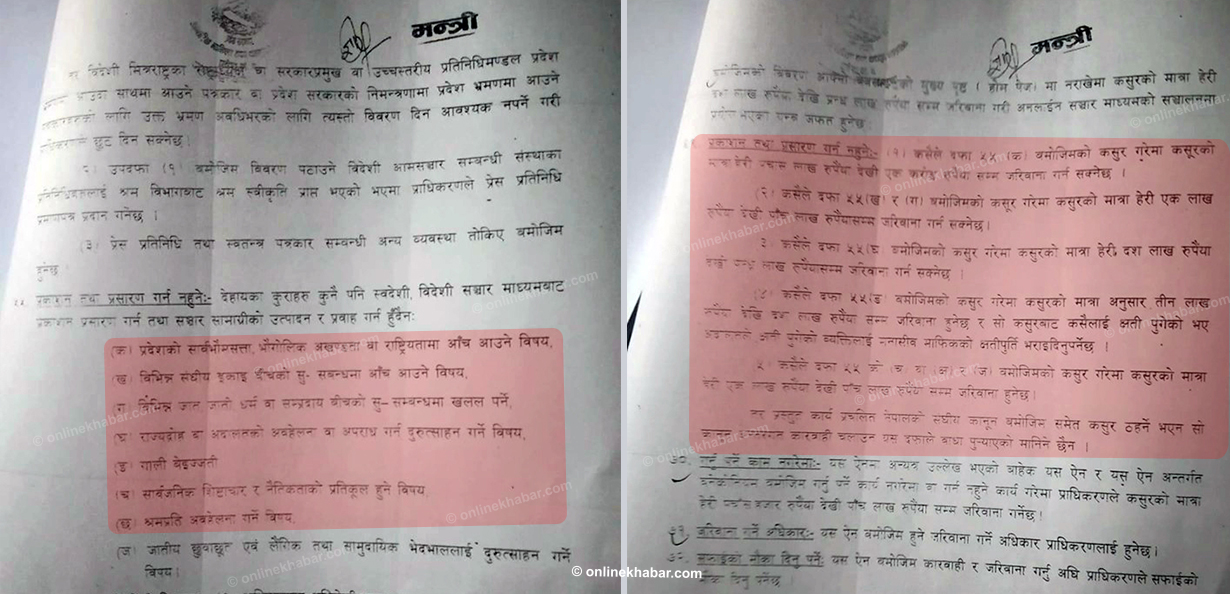 मन्त्री
विदेशी मित्रराष्ट्रका वा सरकारप्रमुख वा उच्चस्तरीय प्रतिनिधिमण्डल प्रदेश
साथमा आउने पत्रकार वा प्रदेश सरकारको निमन्त्रणामा प्रदेश भ्रमणमा आउने
लागि उक्त भ्रमण अवधिभरको लागि त्यस्तो विवरण दिन आवश्यक नपर्ने गरी
छुट दिन सक्नेछ।
उपदफा (१) बमोजिम विवरण पठाउने विदेशी आमसञ्चार सम्बन्धी संस्थाका
श्रम विभागबाट श्रम स्वीकृति प्राप्त भएको भएमा प्राधिकरणले प्रेस प्रतिनिधि
प्रदान गर्नेछ ।
(३) प्रेस प्रतिनिधि तथा स्वतन्त्र पत्रकार सम्बन्धी अन्य व्यवस्था तोकिए बमोजिम
हुनेछ
प्रकाशन तथा प्रसारण गर्न नहुने:- देहायका कुराहरु कुनै पनि स्वदेशी, विदेशी सञ्चार माध्यमबाट
प्रकाशन प्रसारण गर्न तथा सञ्चार सामाग्रीको उत्पादन र प्रवाह गर्न हुँदैनः
(क) प्रदेशको सार्वभौमसत्ता, भौगोलिक अखण्डता वा राष्ट्रियतामा आँच आउने विषय,
(ख) विभिन्न संघीय इकाइ बीचको सु- सबन्धमा आँच आउने विषय,
(ग) विभिन्न जात जाती धर्म वा सम्प्रदाय बीचको सु–सम्बन्धमा खलल पर्ने,
(घ) राज्यद्रोह वा अदालतको अवहेलना वा अपराध गर्न दुरुत्साहन गर्ने विषय,
(ङ) गाली बेइज्जती
(च) सार्वजनिक शिष्टाचार र नैतिकताको प्रतिकूल हुने विषय,
(छ) श्रमप्रति अवहेलना गर्ने विषय,
(ज) जातीय छुवाछूत एवं लैंगिक तथा सामुदायिक भेदभावलाई दुरुत्साहन गर्ने
विषय।
मन्त्री
बमोजिमको विवरण आफ्नो मुख्य पृष्ठ ( होम पेज) मा नराखेमा कसुरको मात्रा हेरी
दश लाख रुपैया देखि पन्ध्र लाख रुपैया सम्म जरिवाना गरी अनलाईन सञ्चार माध्यमको सञ्चालनमा
प्रयोग भएको जफत हुनेछ।
प्रकाशन तथा प्रसारण गर्न नहुने:- (१) कसैले दफा ५५ (क) बमोजिमको कसुर गरेमा कसूरको
मात्रा हेरी पचास लाख रुपैया देखी एक करोड रुपैया सम्म जरिवाना गर्न सक्नेछ ।
(२) कसैले दफा ५५(ख) र (ग) बमोजिमको कसूर गरेमा कसुरको मात्रा हेरी एक लाख
रुपैया देखी पाँच लाख रुपैयासम्म जरिवाना गर्न सक्नेछ।
३ कसैले दफा ५५(घ) बमोजिमको कसुर गरेमा कसुरको मात्रा हेरी दश लाख रुपैया
देखी पन्ध्र लाख रुपैयासम्म जरिवाना गर्न सक्नेछ ।
(४) कसैले दफा ५५(ङ) बमोजिमको कसुर गरेमा कसुरको मात्रा अनुसार तीन लाख
रुपैया देखि दश लाख रुपैया सम्म जरिवाना हुनेछ र सो कसुरबाट कसैलाई क्षती पुगेको भए
अदालतले क्षती पुगेको व्यक्तिलाई मनासीव माफिकको क्षतीपुर्ति भराइदिनुपर्नेछ ।
५) कसैले दफा ५५ को (च) (छ) र (ज) बमोजिमको कसुर गरेमा कसुरको मात्रा
हेरी एक लाख रुपैया देखी पाँच लाख रुपैया सम्म जरिवाना हुनेछ।
तर प्रस्तुत कार्य प्रचलित नेपालको संघीय कानून बमोजिम समेत कसुर ठहर्ने भएन सो
कानून अन्तरगत कारवाही चलाउन यस दफाले बाधा पुर्‍याएको मानिने छैन ।
गर्नु पर्ने काम नगरेमा:- यस ऐनमा अन्यत्र उल्लेख भएको बाहेक यस ऐन र यस ऐन अन्तर्गत
बमोजिम गर्नु पर्ने कार्य नगरेमा वा गर्न नहुने कार्य गरेमा प्राधिकरणले कसुरको मात्रा
हेरी हजार रुपैया देखी पाँच लाख रुपैया सम्म जरिवाना गर्नेछ।
जरिवाना गर्ने अधिकार:- यस ऐन बमोजिम हुने जरिवाना गर्ने अधिकार प्राधिकरणलाई हुनेछ।
सफाईको मौका दिनु पर्ने: यस ऐन बमोजिम कारवाही र जरिवाना गर्नु अघि प्राधिकरणले सफाईको
दिनु पर्नेछ
© onlinekhabar.com